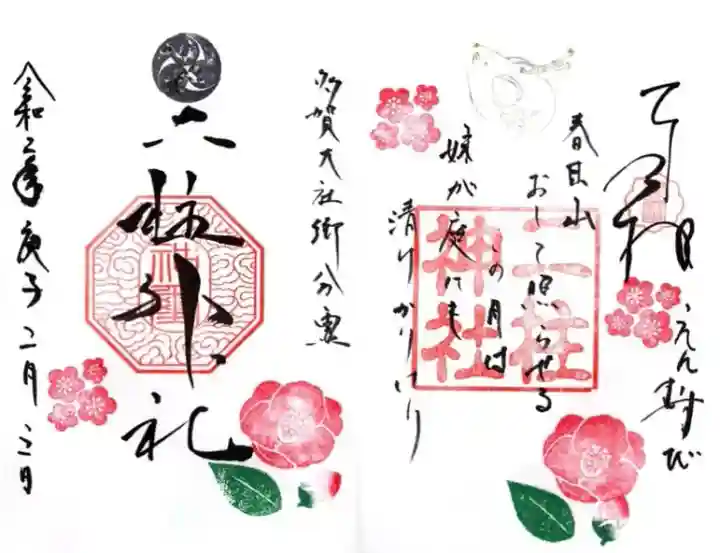 えんむすび
春日山
おして照らせる
この月は
妹が庭にも
清けかりけり
二柱
神社
多賀大社御分霊
六柱神社
令和二年庚子二月三日